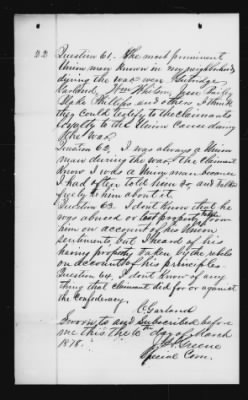 22
Question 61. The most prominent
Union men known in my neighborhood
during the war were
Garland, Wm Whitson, Jesse
Blake Phillips and others I think
they could testify to the claimants
loyalty to the Union Cause during
the War.
Question 62. I was always a Union
man during the war. the Claimant
knew I was a Union man because
I had often told him so, and talked
freely to him about it.
Question 63. I don't know that he
was abused or lost property taken from
him on account of his Union
sentiments, but I heard of his
having property taken by the rebels
on account of his principles.
Question 64. I don't know of any
thing that claimant did for or against
the Confederacy.
C. Garland
Sworn to and Subscribed before
me this the 6" day of March
1878.
Greene
Special Com.